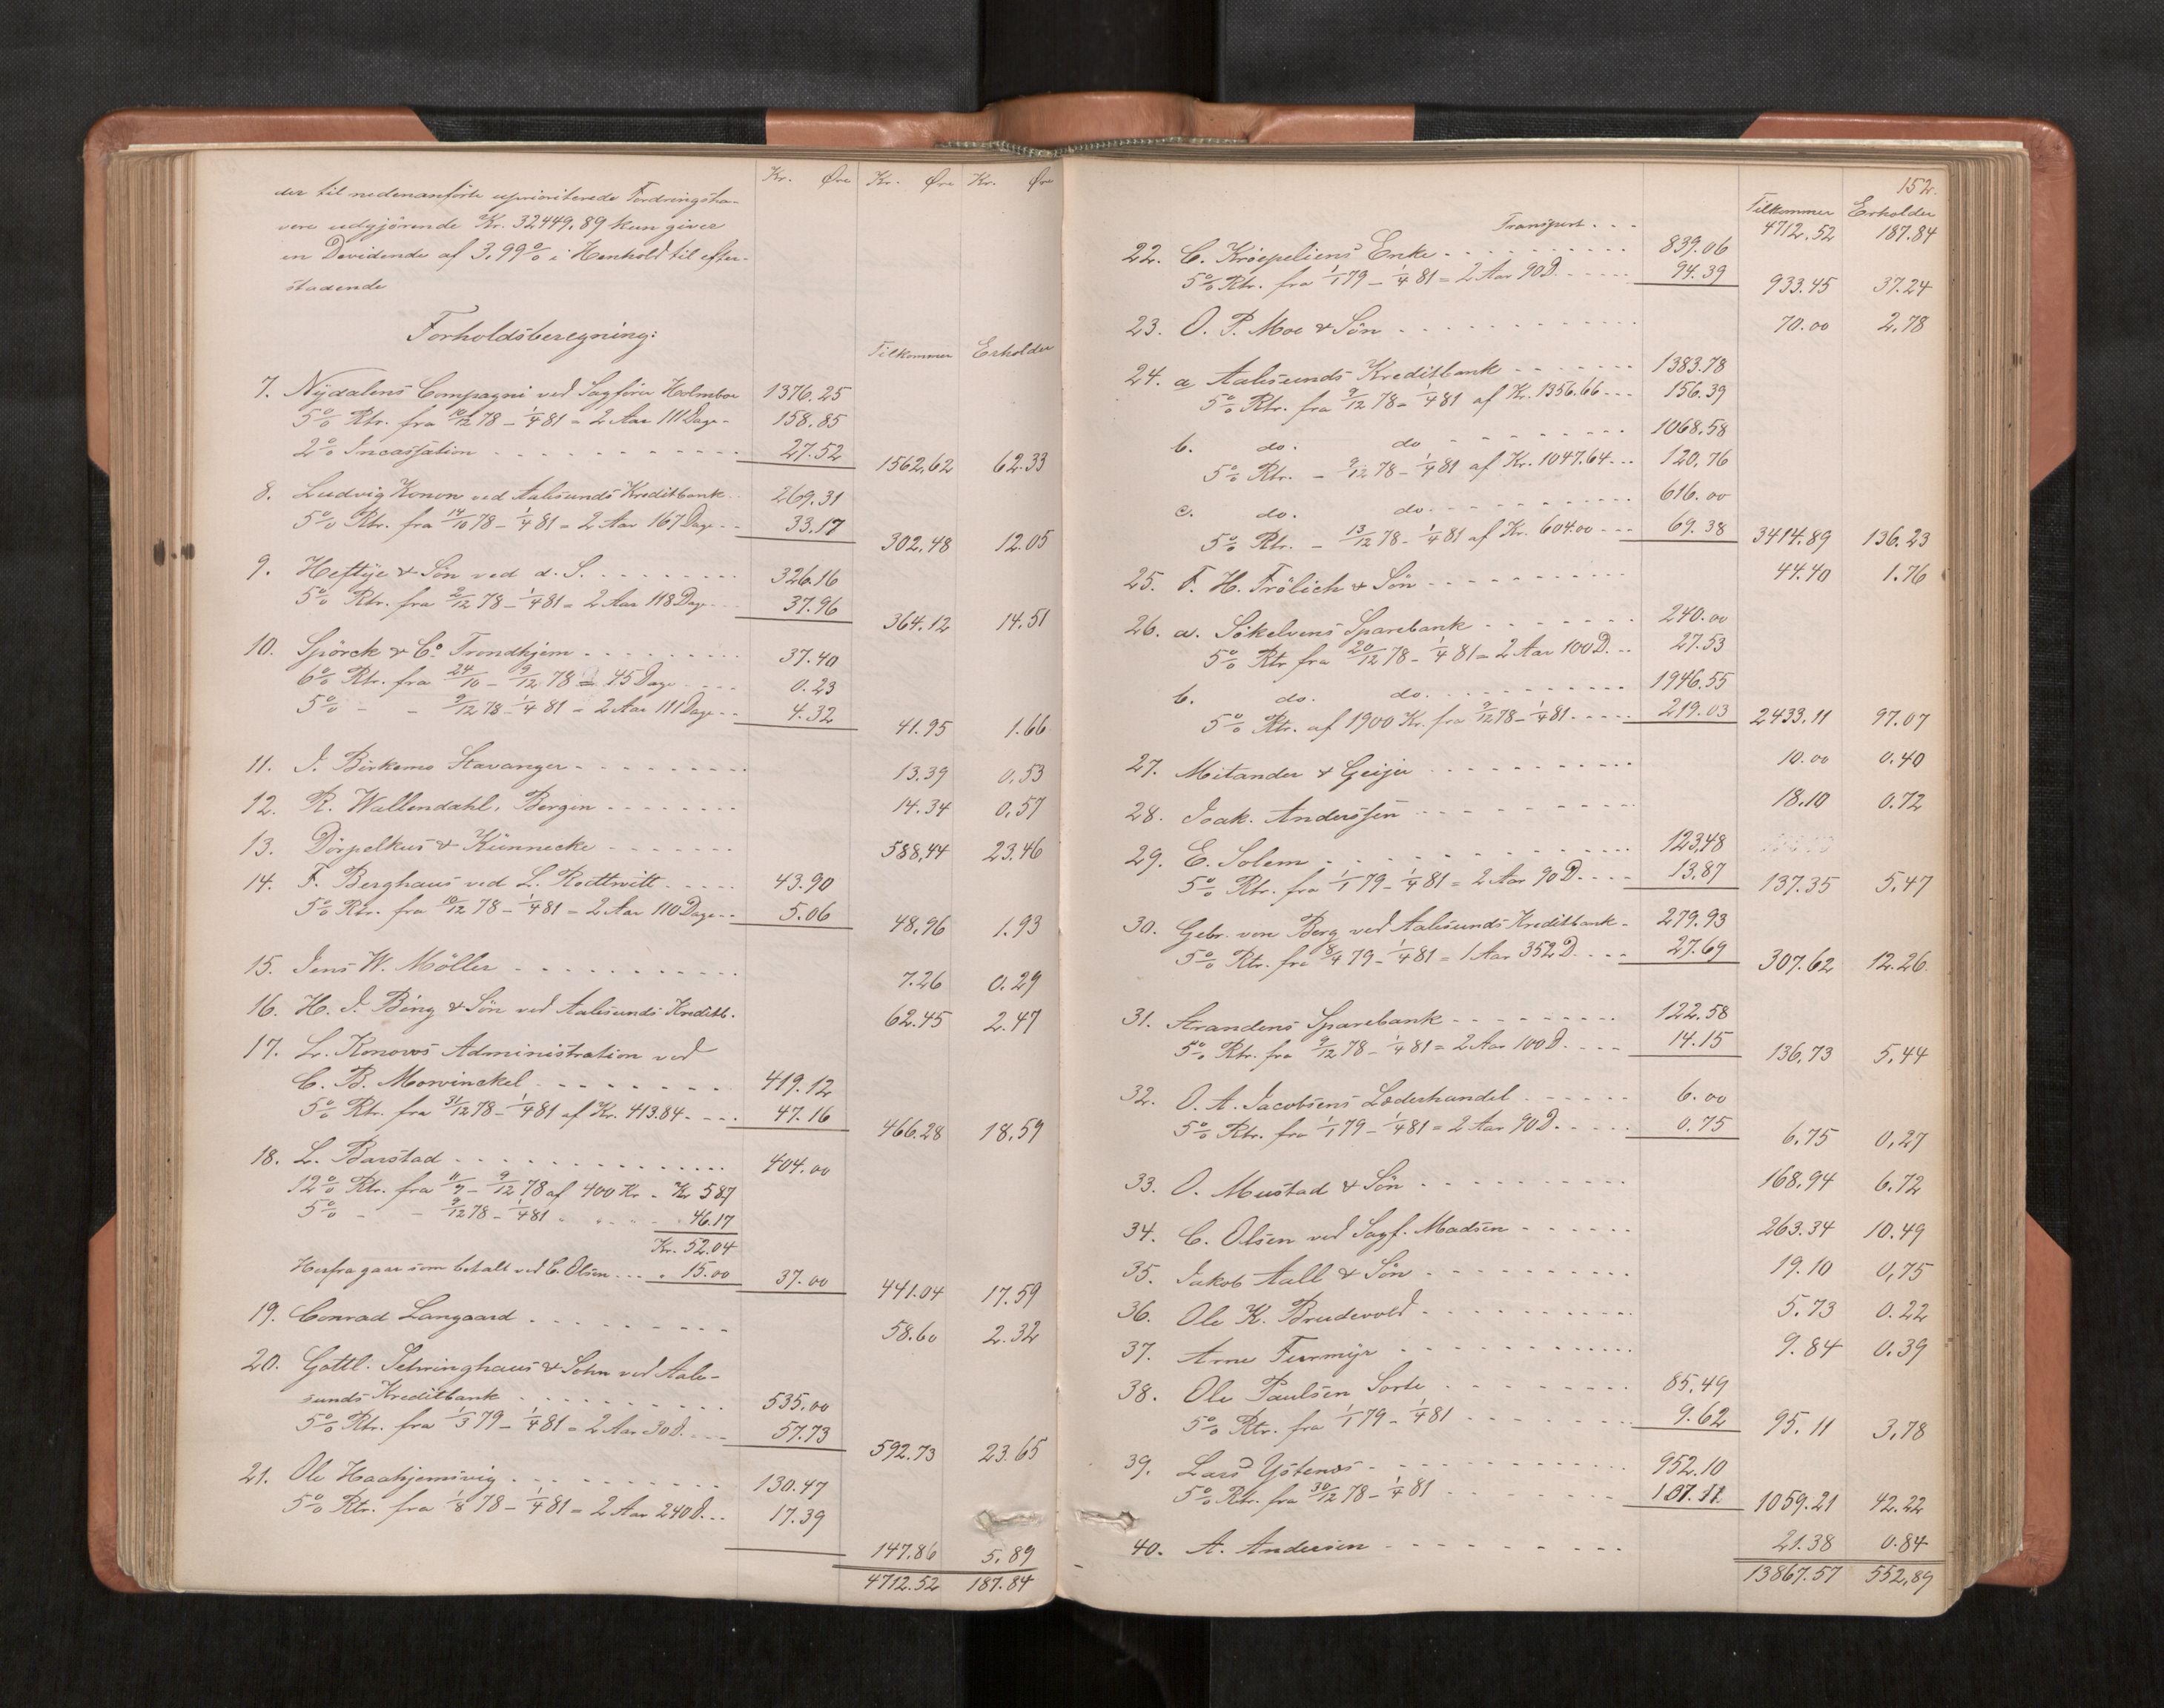 Kr. Øre Kr. Øre Kr. Øre
der til nedenanførte uprioriterede Fordringsha-
vere udgjörende Kr. 32449,89 kun giver
en Dividende af 3,99% i Henhold til efter-
staaende
Forholdsberegning:
Tilkommer Erholder
7. Nydalens Compagni ved Sagfører Holmboe 1376.25
5% Rtr. fra 10/12 78 - 1/4 81 = 2 Aar 111 Dage - 158.85
2% Incassation 27.52 1562,62 62.33
8. Ludvig Konow ved Aalesunds Kreditbank 269.31
5% Rtr. fra 14/10 78 - 1/4 81 = 2 Aar 167 Dage 33.17 302.48 12.05
9. Heftye & Sön ved d. S. 326.16
5% Rtr. fra 2/12 78 - 1/4 81 = 2 Aar 118 Dage 37.96 364.12 14.51
10. Spörck & Co. Trondhjem 37.40
6% Rtr. fra 24/10 - 9/12 78 = 45 Dage 0.23
5% - - 9/12 78 - 1/4 81 = 2 Aar 111 Dage 4.32 41.95 1.66
11. J. Birkemo Stavanger 13.39 0,53
12. R. Wallendahl, Bergen 14.34 0,57
13. Dörpelkus & Künnecke 588,44 23.46
14. F. Berghaus ved L. 43.90
5% Rtr. fra 10/12 78 - 1/4 81 = 2 Aar 110 Dage 5.06 48,96 1.93
15. Jens W. Möller 7.26 0.29
16. H. J. Bing & Sön ved Aalesunds Kreditb. 62.45 2.47
17. L. Konows Administration ved
C. B. Mowinckel 419.12
5% Rtr. fra 31/12 78 - 1/4 81 af Kr. 413.84 47.16 466.28 18,59
18. L. Barstad 404.00
12% Rtr. fra 11/9 - 9/12 78 af 400 Kr. Kr 5.87
5% - - 9/12 78 - 1/4 81 46.17
Kr. 52.04
Herfra gaar som betalt ved C. Olsen 15.00 37.00 441.04 17.59
19. Conrad Langaard 58.60 2.32
20. Gottl. Schwinghaus & Sohn ved Aale-
sunds Kreditbank 535,00
5% Rtr. fra 1/3 79 - 1/4 81 = 2 Aar 30 D. 57.73 592.73 23.65
21. Ole Haahjemsvig 130.47
5% Rtr. fra 1/8 78 - 1/4 81 = 2 Aar 240 D. 17.39
147.86 5,89
4712.52 187.84
152.
Tilkommer Erholder
Transport 4712,52 187.84
22. C. Kröepeliens Enke 839.06
5% Rtr. fra 1/1 79 - 1/4 81 = 2 Aar 90 D. 94.39 933.45 37.24
23. O. P. Moe & Sön 70.00 2,78
24. a Aalesunds Kreditbank 1383.78
5% Rtr. fra 9/12 78 - 1/4 81 af Kr. 1356.66 156.39
b. do. do 1068,58
5% Rtr. - 9/12 78 - 1/4 81 af Kr. 1047.64 120,76
c. do. do. 616.00
5% Rtr. - 13/12 78 - 1/4 81 af Kr. 604.00 69.38 3414.89 136.23
25. F. H. Frölich & Sön 44.40 1.76
26. a. Sökelvens Sparebank 240.00
5% Rtr fra 20/12 78 - 1/4 81 = 2 Aar 100 D. 27.53
b. do. do. 1946.55
5% Rtr. af 1900 Kr. fra 9/12 78 - 1/4 81 219.03 2433.11 97.07
27. Mitander & Geijer 10.00 0.40
28. Isak. Anderssen 18.10 0.72
29. E. Solem 123,48
5% Rtr. fra 1/1 79 - 1/4 81 = 2 Aar 90 D. 13,87 137.35 5,47
30. Gebr. von Berg ved Aalesunds Kreditbank 279.93
5% Rtr. fra 8/4 79 - 1/4 81 = 1 Aar 352 D. 27.69 307.62 12.26
31. Strandens Sparebank 122.58
5% Rtr. fra 9/12 78 - 1/4 81 = 2 Aar 100 D. 14.15 136,73 5,44
32. O. A. Jacobsens Læderhandel 6.00
5% Rtr. fra 1/1 79 - 1/4 81 = 2 Aar 90 D. 0.75 6.75 0,27
33. O. Mustad & Sön 168,94 6.72
34. C. Olsen ved Sagf. Madsen 263.34 10.49
35. Jakob Aall & Sön 19.10 0,75
36. Ole K. Brudevold 5.73 0.22
37. Arne Furmyr 9.84 0.39
38. Ole Paulsen Sorte 85,49
5% Rtr. fra 1/1 79 - 1/4 81 9.62 95.11 3,78
39. Lars Ystenes 952.10
5% Rtr. fra 30/12 78 - 1/4 81 107.11 1059.21 42.22
40. A. Andersen 21.38 0.84
13867.57 552,89